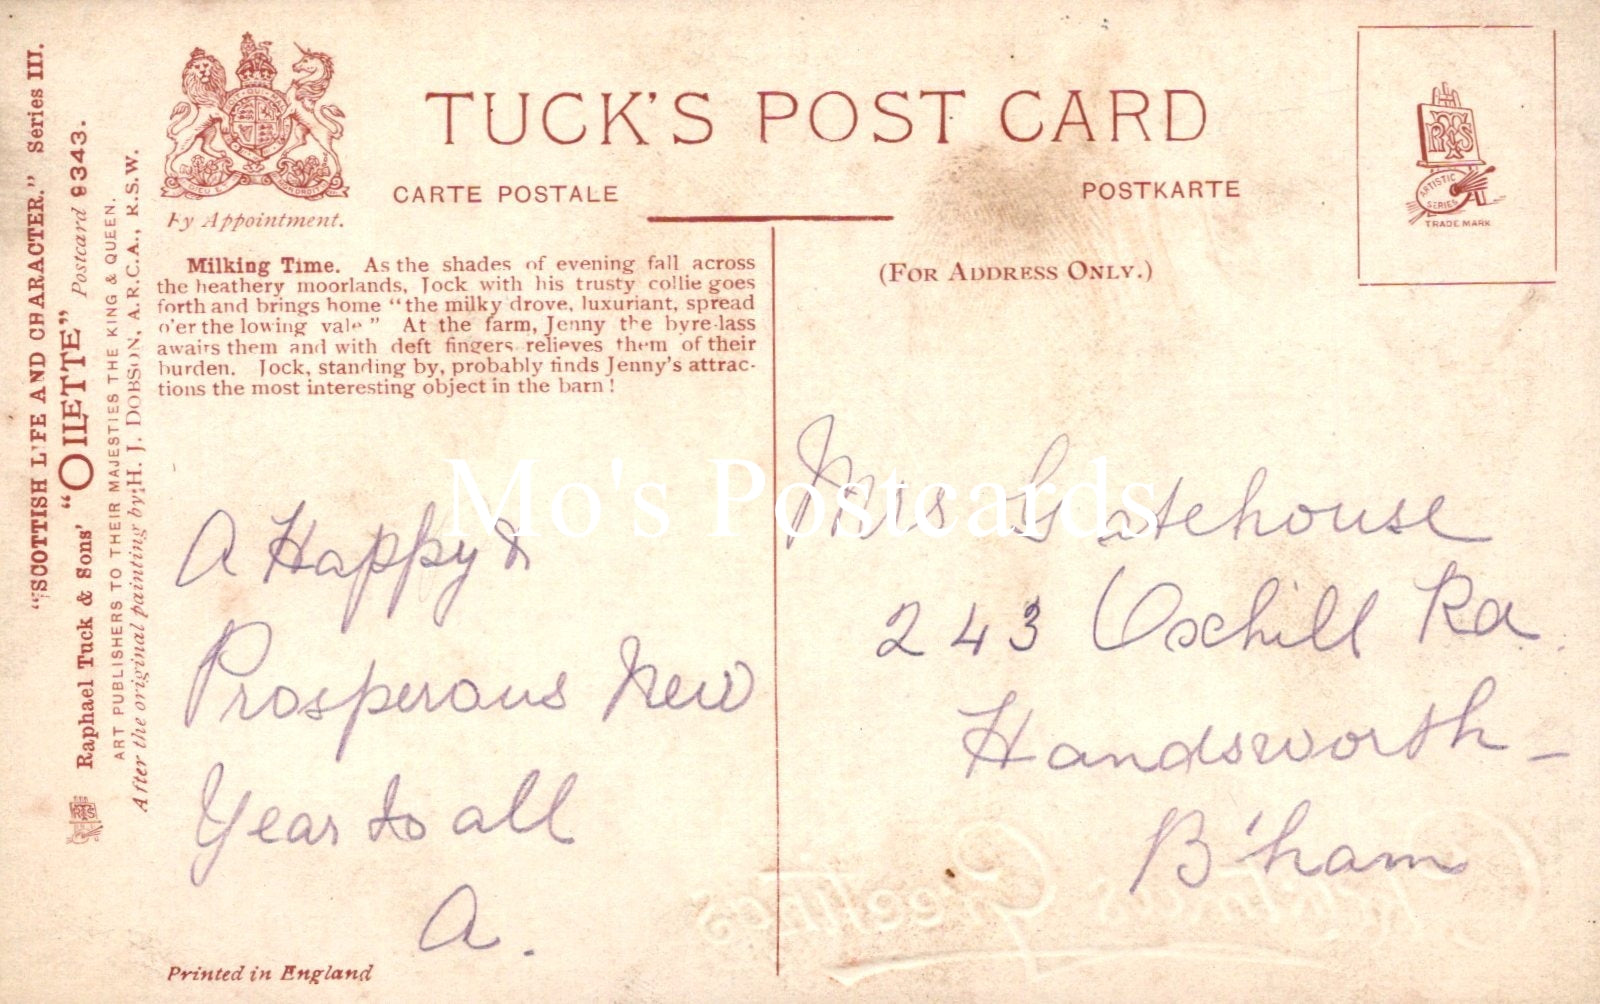 "SCOTTISH LIFE AND CHARACTER." Series III.
Raphael Tuck & Sons' "OILETTE" Postcard 9343.
ART PUBLISHERS TO THEIR MAJESTIES THE KING & QUEEN.
After the original painting by H. J. DOBSON, A.R.C.A., R.S.W.
By Appointment.
TUCK'S POST CARD
CARTE POSTALE
POSTKARTE
RTS
ARTISTIC
SERIES
TRADE MARK
(FOR ADDRESS ONLY.)
Milking Time. As the shades of evening fall across
the heathery moorlands, Jock with his trusty collie goes
forth and brings home "the milky drove, luxuriant, spread
o'er the lowing vale" At the farm, Jenny the byre-lass
awaits them and with deft fingers relieves them of their
burden. Jock, standing by, probably finds Jenny's attrac-
tions the most interesting object in the barn!
Mo's Postcards
A Happy &
Prosperous New
Year to all
A.
Mrs Gatehouse
243 Oxhill Rd.
Handsworth -
B'ham
Christmas Greetings
Printed in England